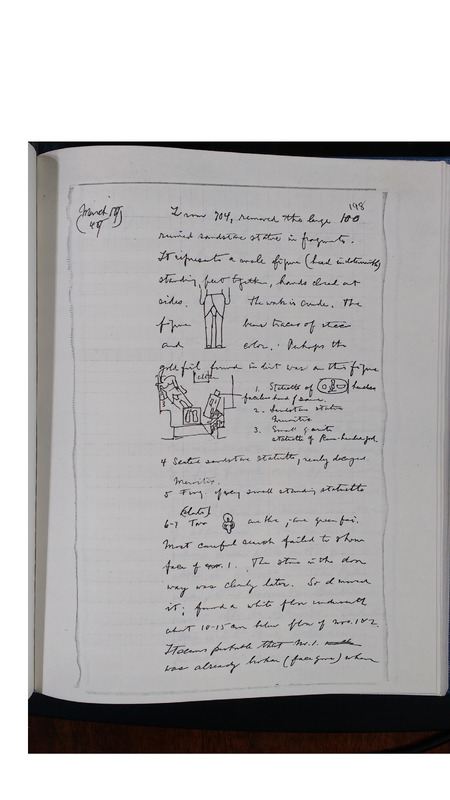 198
March 19
In room 904, removed the large
ruined sandstone statue in fragments.
It represents a male figure (head indeterminate)
standing feet together, hands closed at
sides. The work is crude. The
figure bears traces of
and color. Perhaps the
gold foil found in dirt was on this figure
1. Statuette of
faceless head of same.
2. Sandstone statue
Meroitic
3. Small
statuette of Ram-headed god.
4 Seated sandstone statuette, nearly decayed
Meroitic.
5 Frag. of very small standing statuette
(slate)
6-7 Two are green fai.
Most careful search failed to show
face of no. 1. The stone in the door
way was clearly later. So I moved
it; found a white floor underneath
about 10-15 cm below floor of nos. 1 & 2.
It seems probable that no. 1.
was already broken (face gone) when